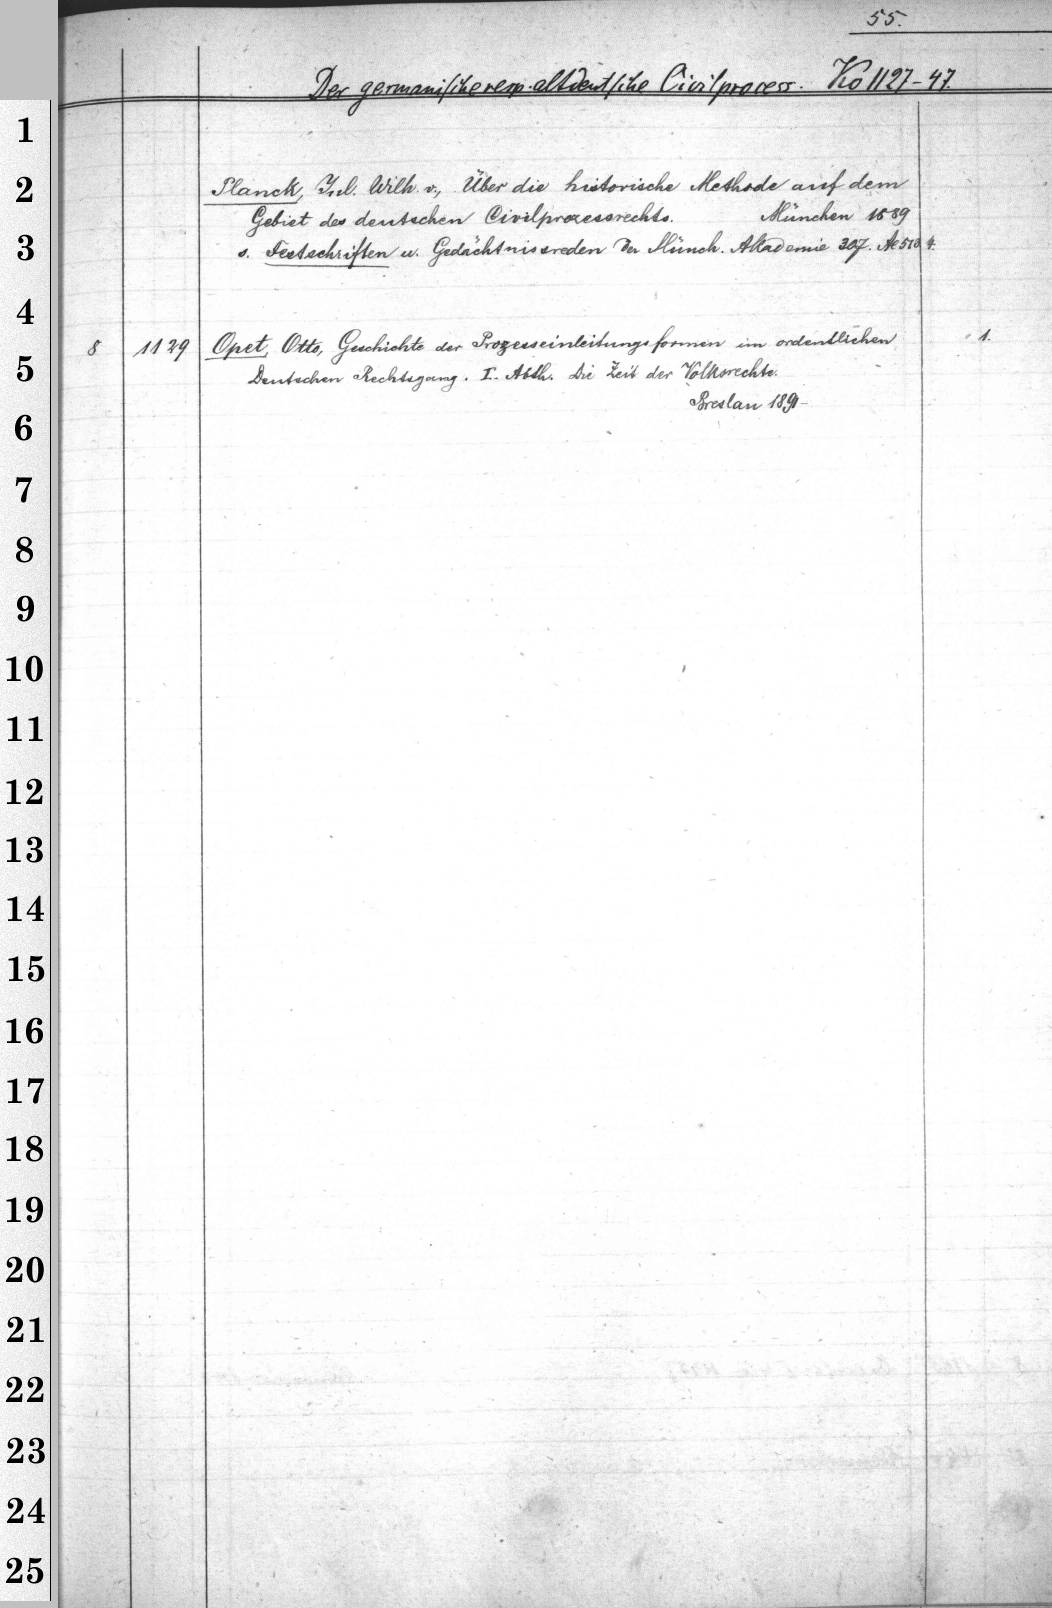 55.
Der germanische resp. altdeutsche Civilprocess. Ko 1127-47.
1
2 Planck, Jul. Wilh. v., Über die historische Methode auf dem
Gebiet des deutschen Civilprozessrechts. München 1889
3 s. Festschriften u. Gedächtnisreden der Münch. Akademie 307. Ae 510 4.
4
8 1129 Opet, Otto, Geschichte der Prozesseinleitungsformen im ordentlichen 1.
5 Deutschen Rechtsgang. I. Abth. Die Zeit der Volksrechte.
Breslau 1891-
6
7
8
9
10
11
12
13
14
15
16
17
18
19
20
21
22
23
24
25